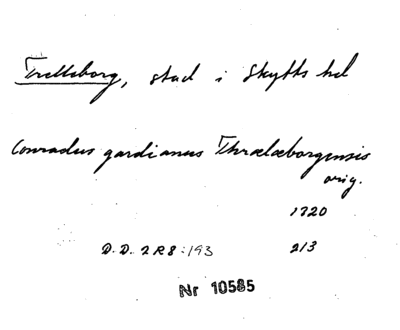 Trelleborg, stad i Skytts hd
Conradus gardianus Thrælæborgensis
orig.
1320
D.D. 2 R 8:193 2/3
Nr 10585